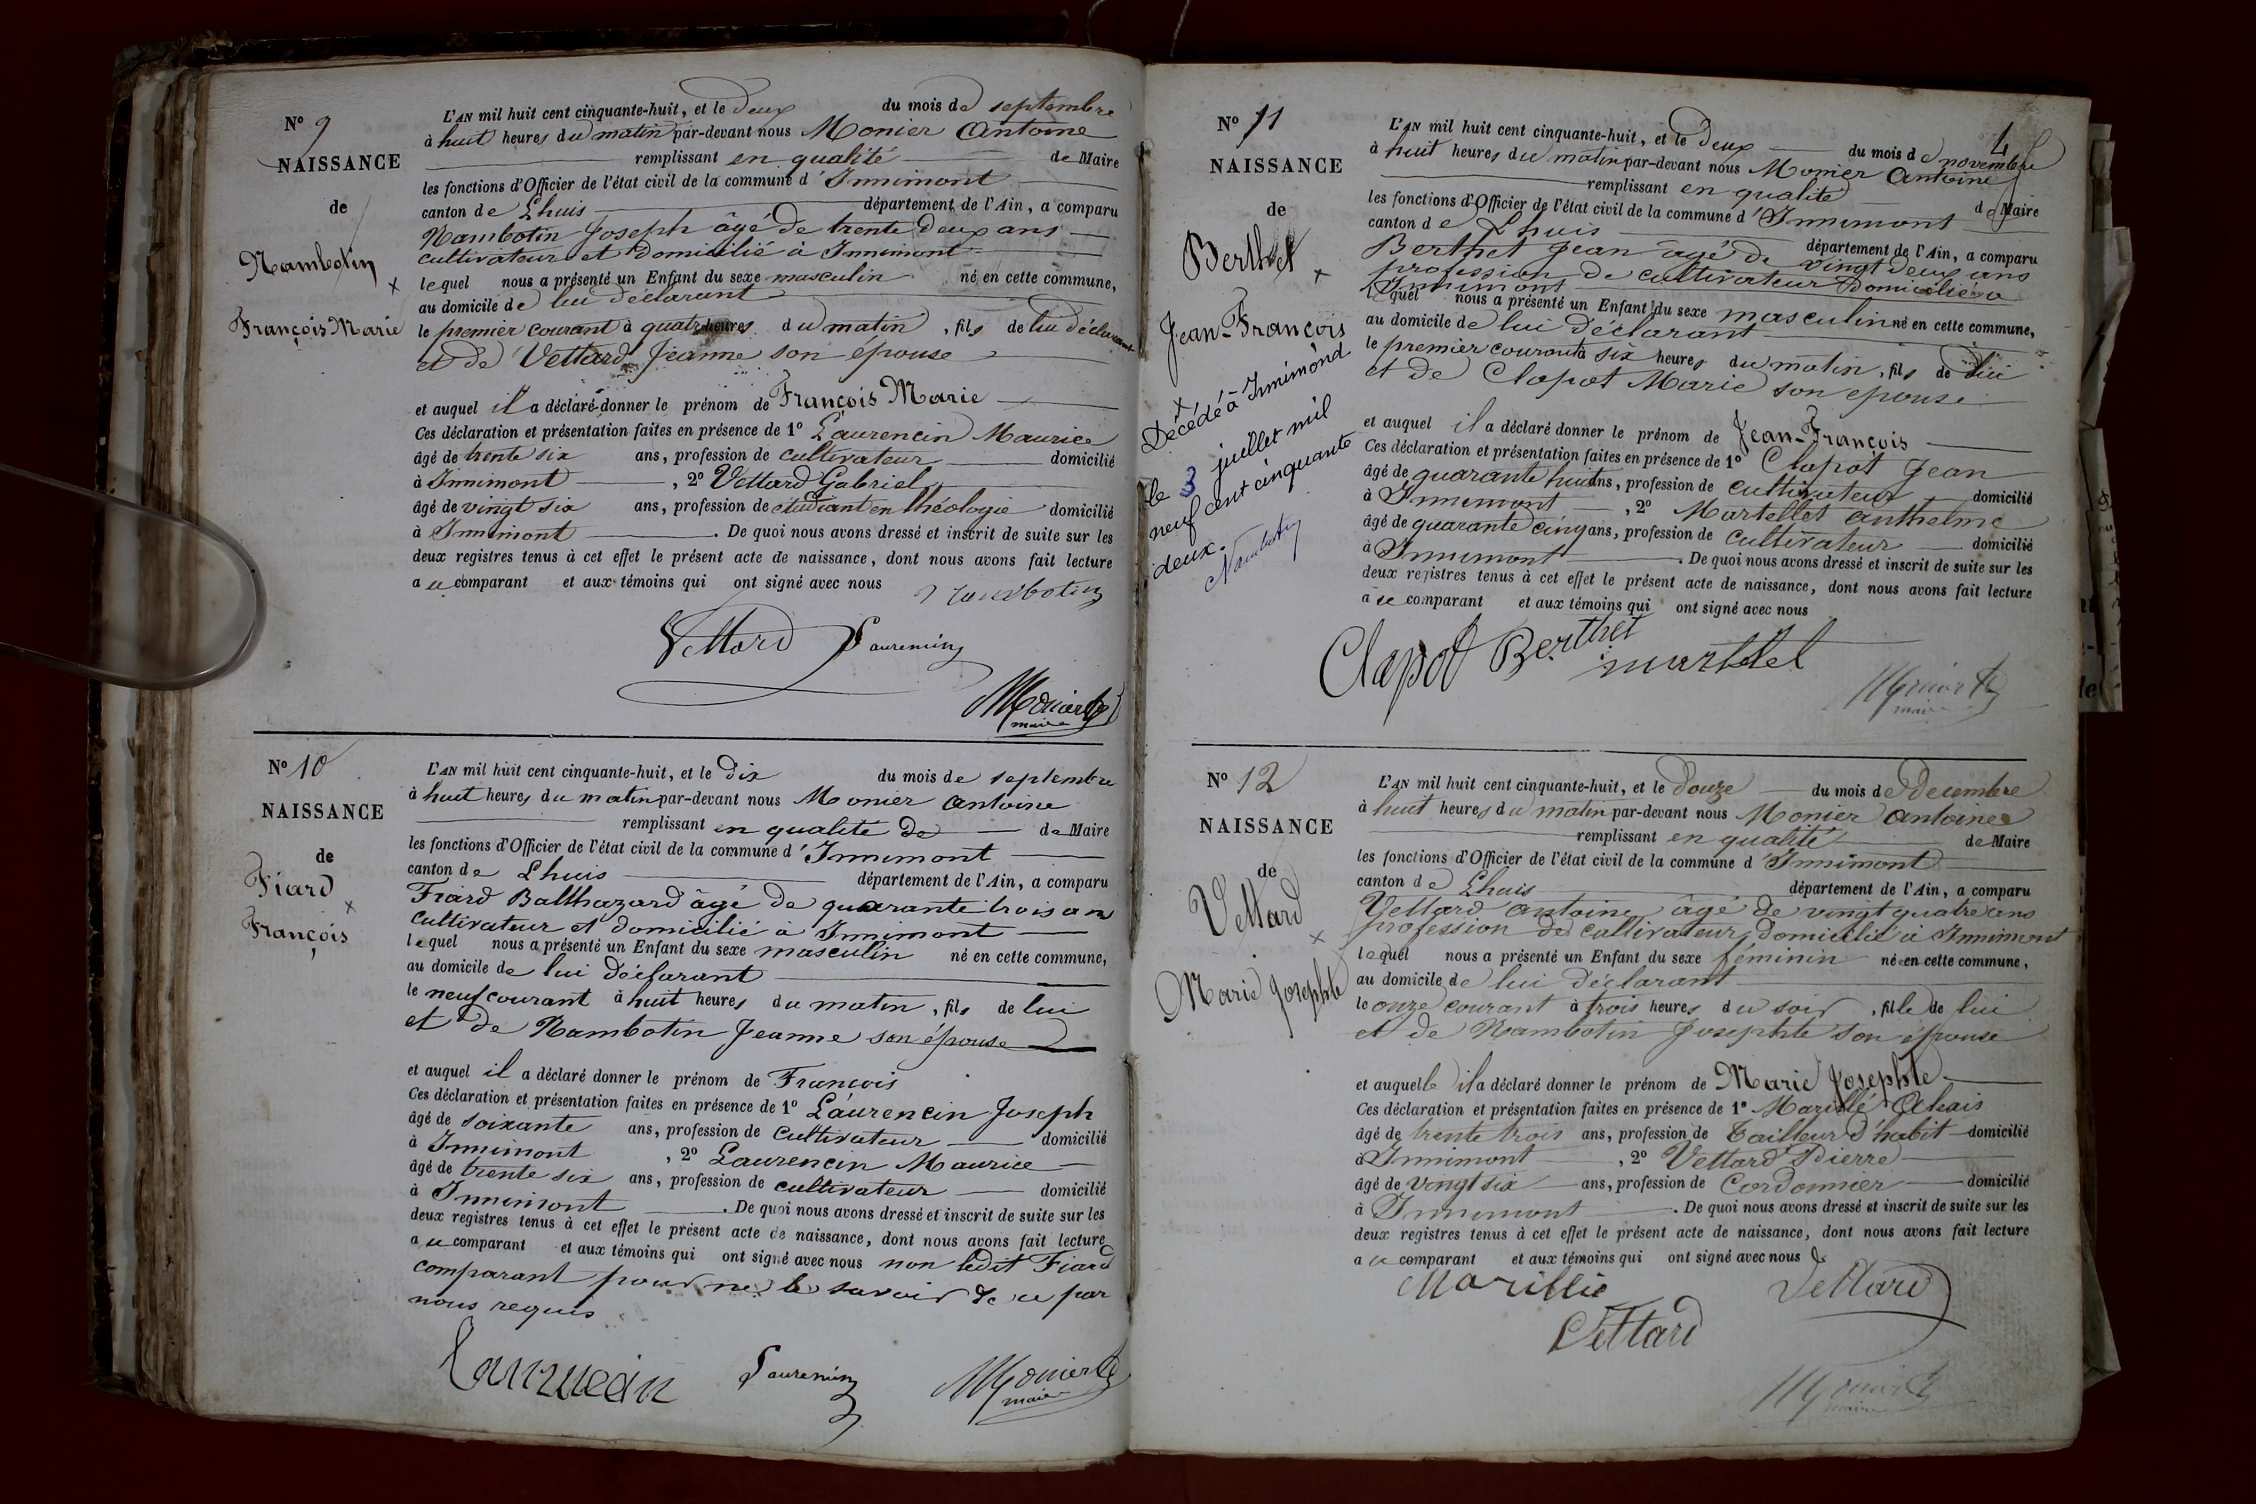 N° 9
NAISSANCE
de
Nambotin
François Marie
L'AN mil huit cent cinquante-huit, et le deux du mois de septembre
à huit heures du matin par-devant nous Monier Antoine
remplissant en qualité de Maire
les fonctions d'Officier de l'état civil de la commune d'Innimont
canton de Lhuis département de l'Ain, a comparu
Nambotin Joseph âgé de trente deux ans
cultivateur et domicilié à Innimont
lequel nous a présenté un Enfant du sexe masculin né en cette commune,
au domicile de lui déclarant
le premier courant à quatre heures du matin, fils de lui déclarant
et de Vettard Jeanne son épouse
et auquel il a déclaré donner le prénom de François Marie
Ces déclaration et présentation faites en présence de 1° Laurencin Maurice
âgé de trente six ans, profession de cultivateur domicilié
à Innimont, 2° Vettard Gabriel
âgé de vingt six ans, profession de étudiant en théologie domicilié
à Innimont. De quoi nous avons dressé et inscrit de suite sur les
deux registres tenus à cet effet le présent acte de naissance, dont nous avons fait lecture
a ce comparant et aux témoins qui ont signé avec nous
Nambotin
Vettard Laurencin
Monier
maire
N° 10
NAISSANCE
de
Fiard
François
L'AN mil huit cent cinquante-huit, et le dix du mois de septembre
à huit heures du matin par-devant nous Monier Antoine
remplissant en qualité de de Maire
les fonctions d'Officier de l'état civil de la commune d'Innimont
canton de Lhuis département de l'Ain, a comparu
Fiard Balthazard âgé de quarante trois ans
cultivateur et domicilié à Innimont
lequel nous a présenté un Enfant du sexe masculin né en cette commune,
au domicile de lui déclarant
le neuf courant à huit heures du matin, fils de lui
et de Nambotin Jeanne son épouse
et auquel il a déclaré donner le prénom de François
Ces déclaration et présentation faites en présence de 1° Laurencin Joseph
âgé de soixante ans, profession de cultivateur domicilié
à Innimont, 2° Laurencin Maurice
âgé de trente six ans, profession de cultivateur domicilié
à Innimont. De quoi nous avons dressé et inscrit de suite sur les
deux registres tenus à cet effet le présent acte de naissance, dont nous avons fait lecture
a ce comparant et aux témoins qui ont signé avec nous non ledit Fiard
comparant pour ne le savoir de ce par
nous requis
Laurencin Laurencin Monier
maire
4
N° 11
NAISSANCE
de
Berthet
Jean-François
Décédé à Innimond
le 3 juillet mil
neuf cent cinquante
deux.
Nambotin
L'AN mil huit cent cinquante-huit, et le deux du mois de novembre
à huit heures du matin par-devant nous Monier Antoine
remplissant en qualité de Maire
les fonctions d'Officier de l'état civil de la commune d'Innimont
canton de Lhuis département de l'Ain, a comparu
Berthet Jean âgé de vingt deux ans
profession de cultivateur domicilié à
Innimont
lequel nous a présenté un Enfant du sexe masculin né en cette commune,
au domicile de lui déclarant
le premier courant à six heures du matin, fils de lui
et de Clapot Marie son epouse
et auquel il a déclaré donner le prénom de Jean-François
Ces déclaration et présentation faites en présence de 1° Clapot Jean
âgé de quarante huit ans, profession de cultivateur domicilié
à Innimont, 2° Martellet Anthelme
âgé de quarante cinq ans, profession de cultivateur domicilié
à Innimont. De quoi nous avons dressé et inscrit de suite sur les
deux registres tenus à cet effet le présent acte de naissance, dont nous avons fait lecture
a ce comparant et aux témoins qui ont signé avec nous
Clapot Berthet
Monier
maire
N° 12
NAISSANCE
de
Vettard
Marie Josephte
L'AN mil huit cent cinquante-huit, et le douze du mois de decembre
à huit heures du matin par-devant nous Monier Antoine
remplissant en qualité de Maire
les fonctions d'Officier de l'état civil de la commune d'Innimont
canton de Lhuis département de l'Ain, a comparu
Vettard Antoine âgé de vingt quatre ans
profession de cultivateur domicilié à Innimont
lequel nous a présenté un Enfant du sexe féminin né en cette commune,
au domicile de lui déclarant
le onze courant à trois heures du soir, fille de lui
et de Nambotin Josephte son épouse
et auquelle il a déclaré donner le prénom de Marie Josephte
Ces déclaration et présentation faites en présence de 1°
âgé de trente trois ans, profession de Tailleur d'habit domicilié
à Innimont, 2° Vettard Pierre
âgé de vingt six ans, profession de Cordonnier domicilié
à Innimont. De quoi nous avons dressé et inscrit de suite sur les
deux registres tenus à cet effet le présent acte de naissance, dont nous avons fait lecture
a ce comparant et aux témoins qui ont signé avec nous
Vettard
Vettard
Monier
maire